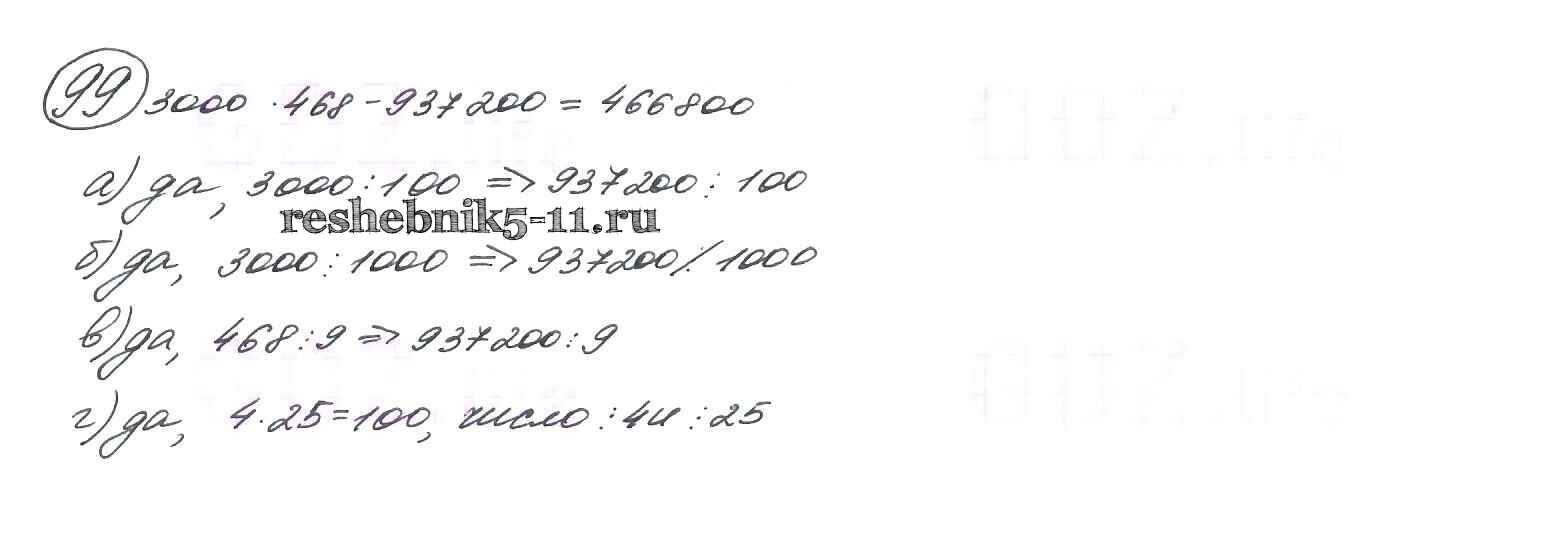 99 3000 · 468 - 937200 = 466800
а) да, 3000 ⋮ 100 => 937200 ⋮ 100
reshebnik5-11.ru
б) да, 3000 ⋮ 1000 => 937200 ⋮̸ 1000
в) да, 468 ⋮ 9 => 937200 ⋮ 9
г) да, 4 · 25 = 100, число ⋮ 4 и ⋮ 25
GDZ.life
GDZ.life
GDZ.life
GDZ.life